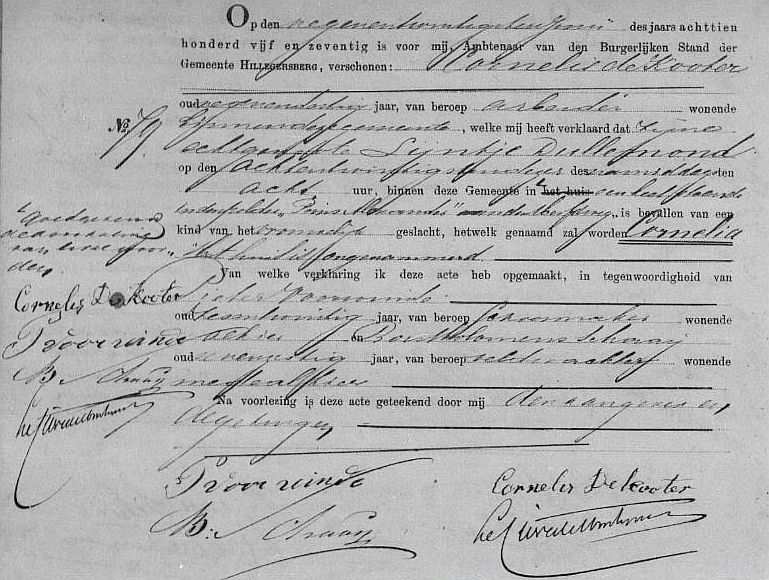 Op den negenentwintigsten Juni des jaars achttien
honderd vijf en zeventig is voor mij, Ambtenaar van den Burgerlijken Stand der
Gemeente HILLEGERSBERG, verschenen: Cornelis de Kooter
oud negenendertig jaar, van beroep arbeider wonende
No. 79
binnen deze gemeente, welke mij heeft verklaard dat zijne
echtgenoote Lijntje Dullemond
op den achtentwintigsten dezer des namiddags ten
acht uur, binnen deze Gemeente in het huis een keet staande
in den polder "Prins Alexander" is bevallen van een
kind van het vrouwelijk geslacht, hetwelk genaamd zal worden Cornelia
"het huis is
Goedgekeurd
de doorhaling
van
Van welke verklaring ik deze acte heb opgemaakt, in tegenwoordigheid van
Cornelis De Kooter
Pieter Voorwinde
oud zesentwintig jaar, van beroep wonende
P Voorwinde
alhier en Bartholomeus Schaaij
oud jaar, van beroep veldwachter wonende
B. Schaaij
mede alhier
Na voorlezing is deze acte geteekend door mij den aangever en
de getuigen
P Voorwinde
Cornelis De Kooter
B. Schaaij